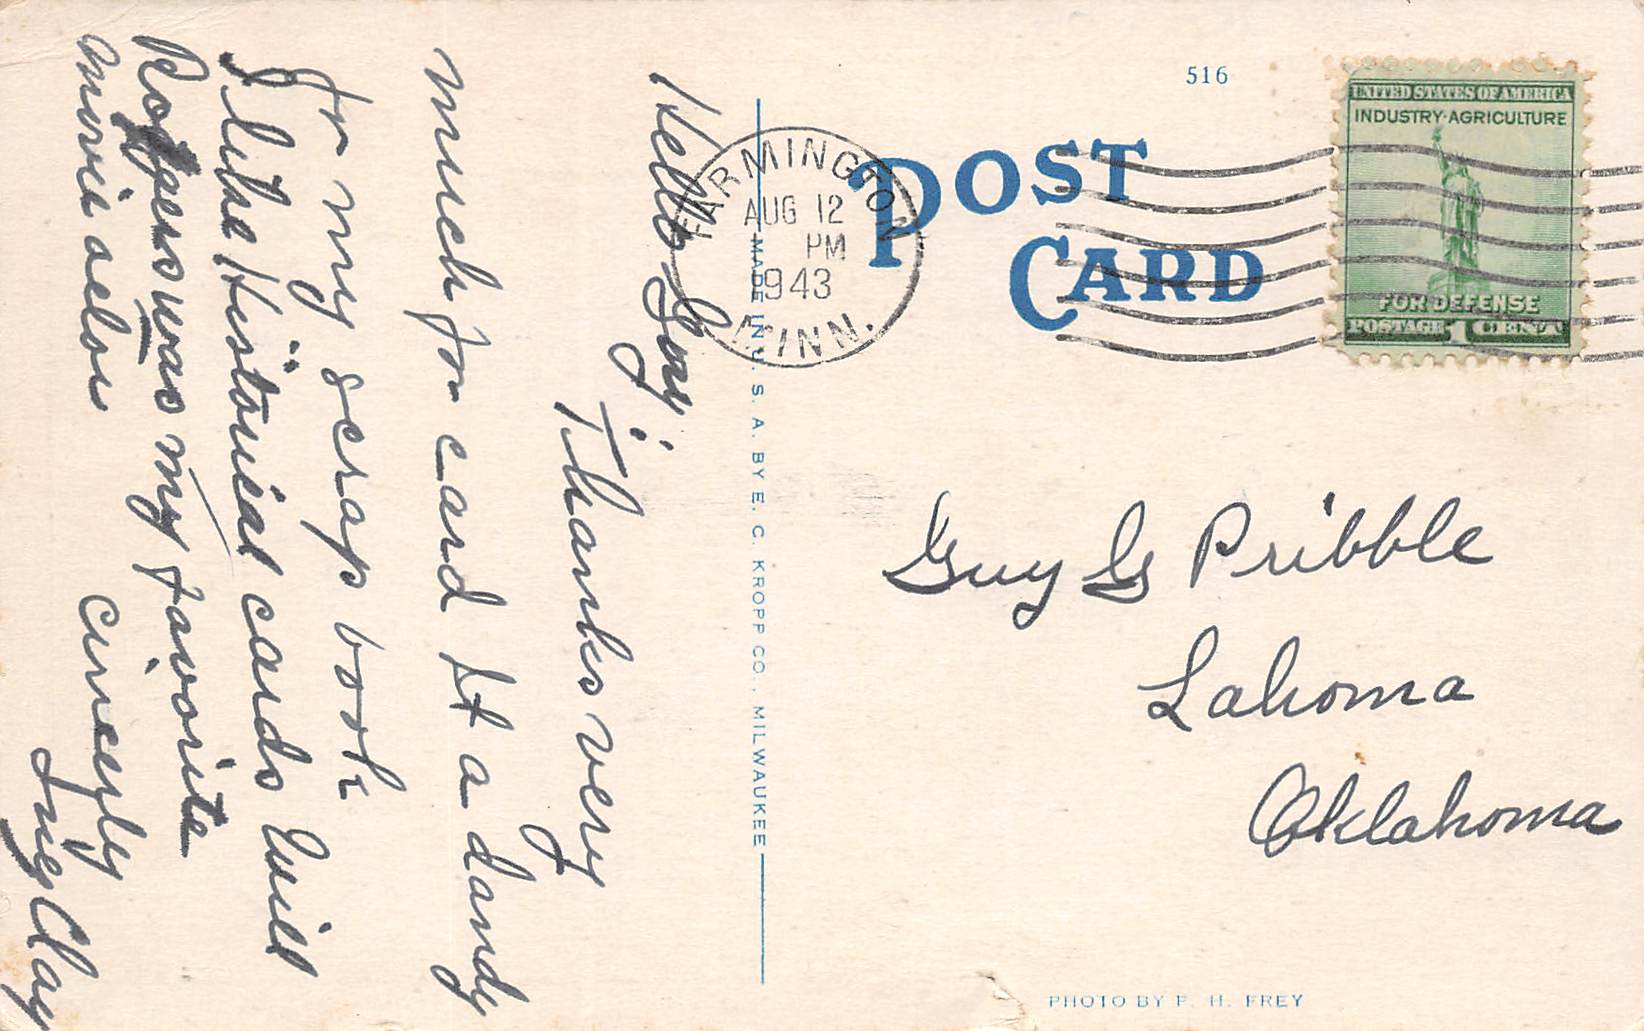 Hello Guy:
Thanks very
much for card It a dandy
for my scrap book
I like Historical cards Will
Rogers was my favorite
movie actor
Cincerly
Clay
MADE IN U. S. A. BY E. C. KROPP CO., MILWAUKEE
516
POST
CARD
FARMINGTON
AUG 12
PM
1943
MINN.
UNITED STATES OF AMERICA
INDUSTRY·AGRICULTURE
FOR DEFENSE
POSTAGE 1 CENT
Guy G Pribble
Lahoma
Oklahoma
PHOTO BY F. H. FREY